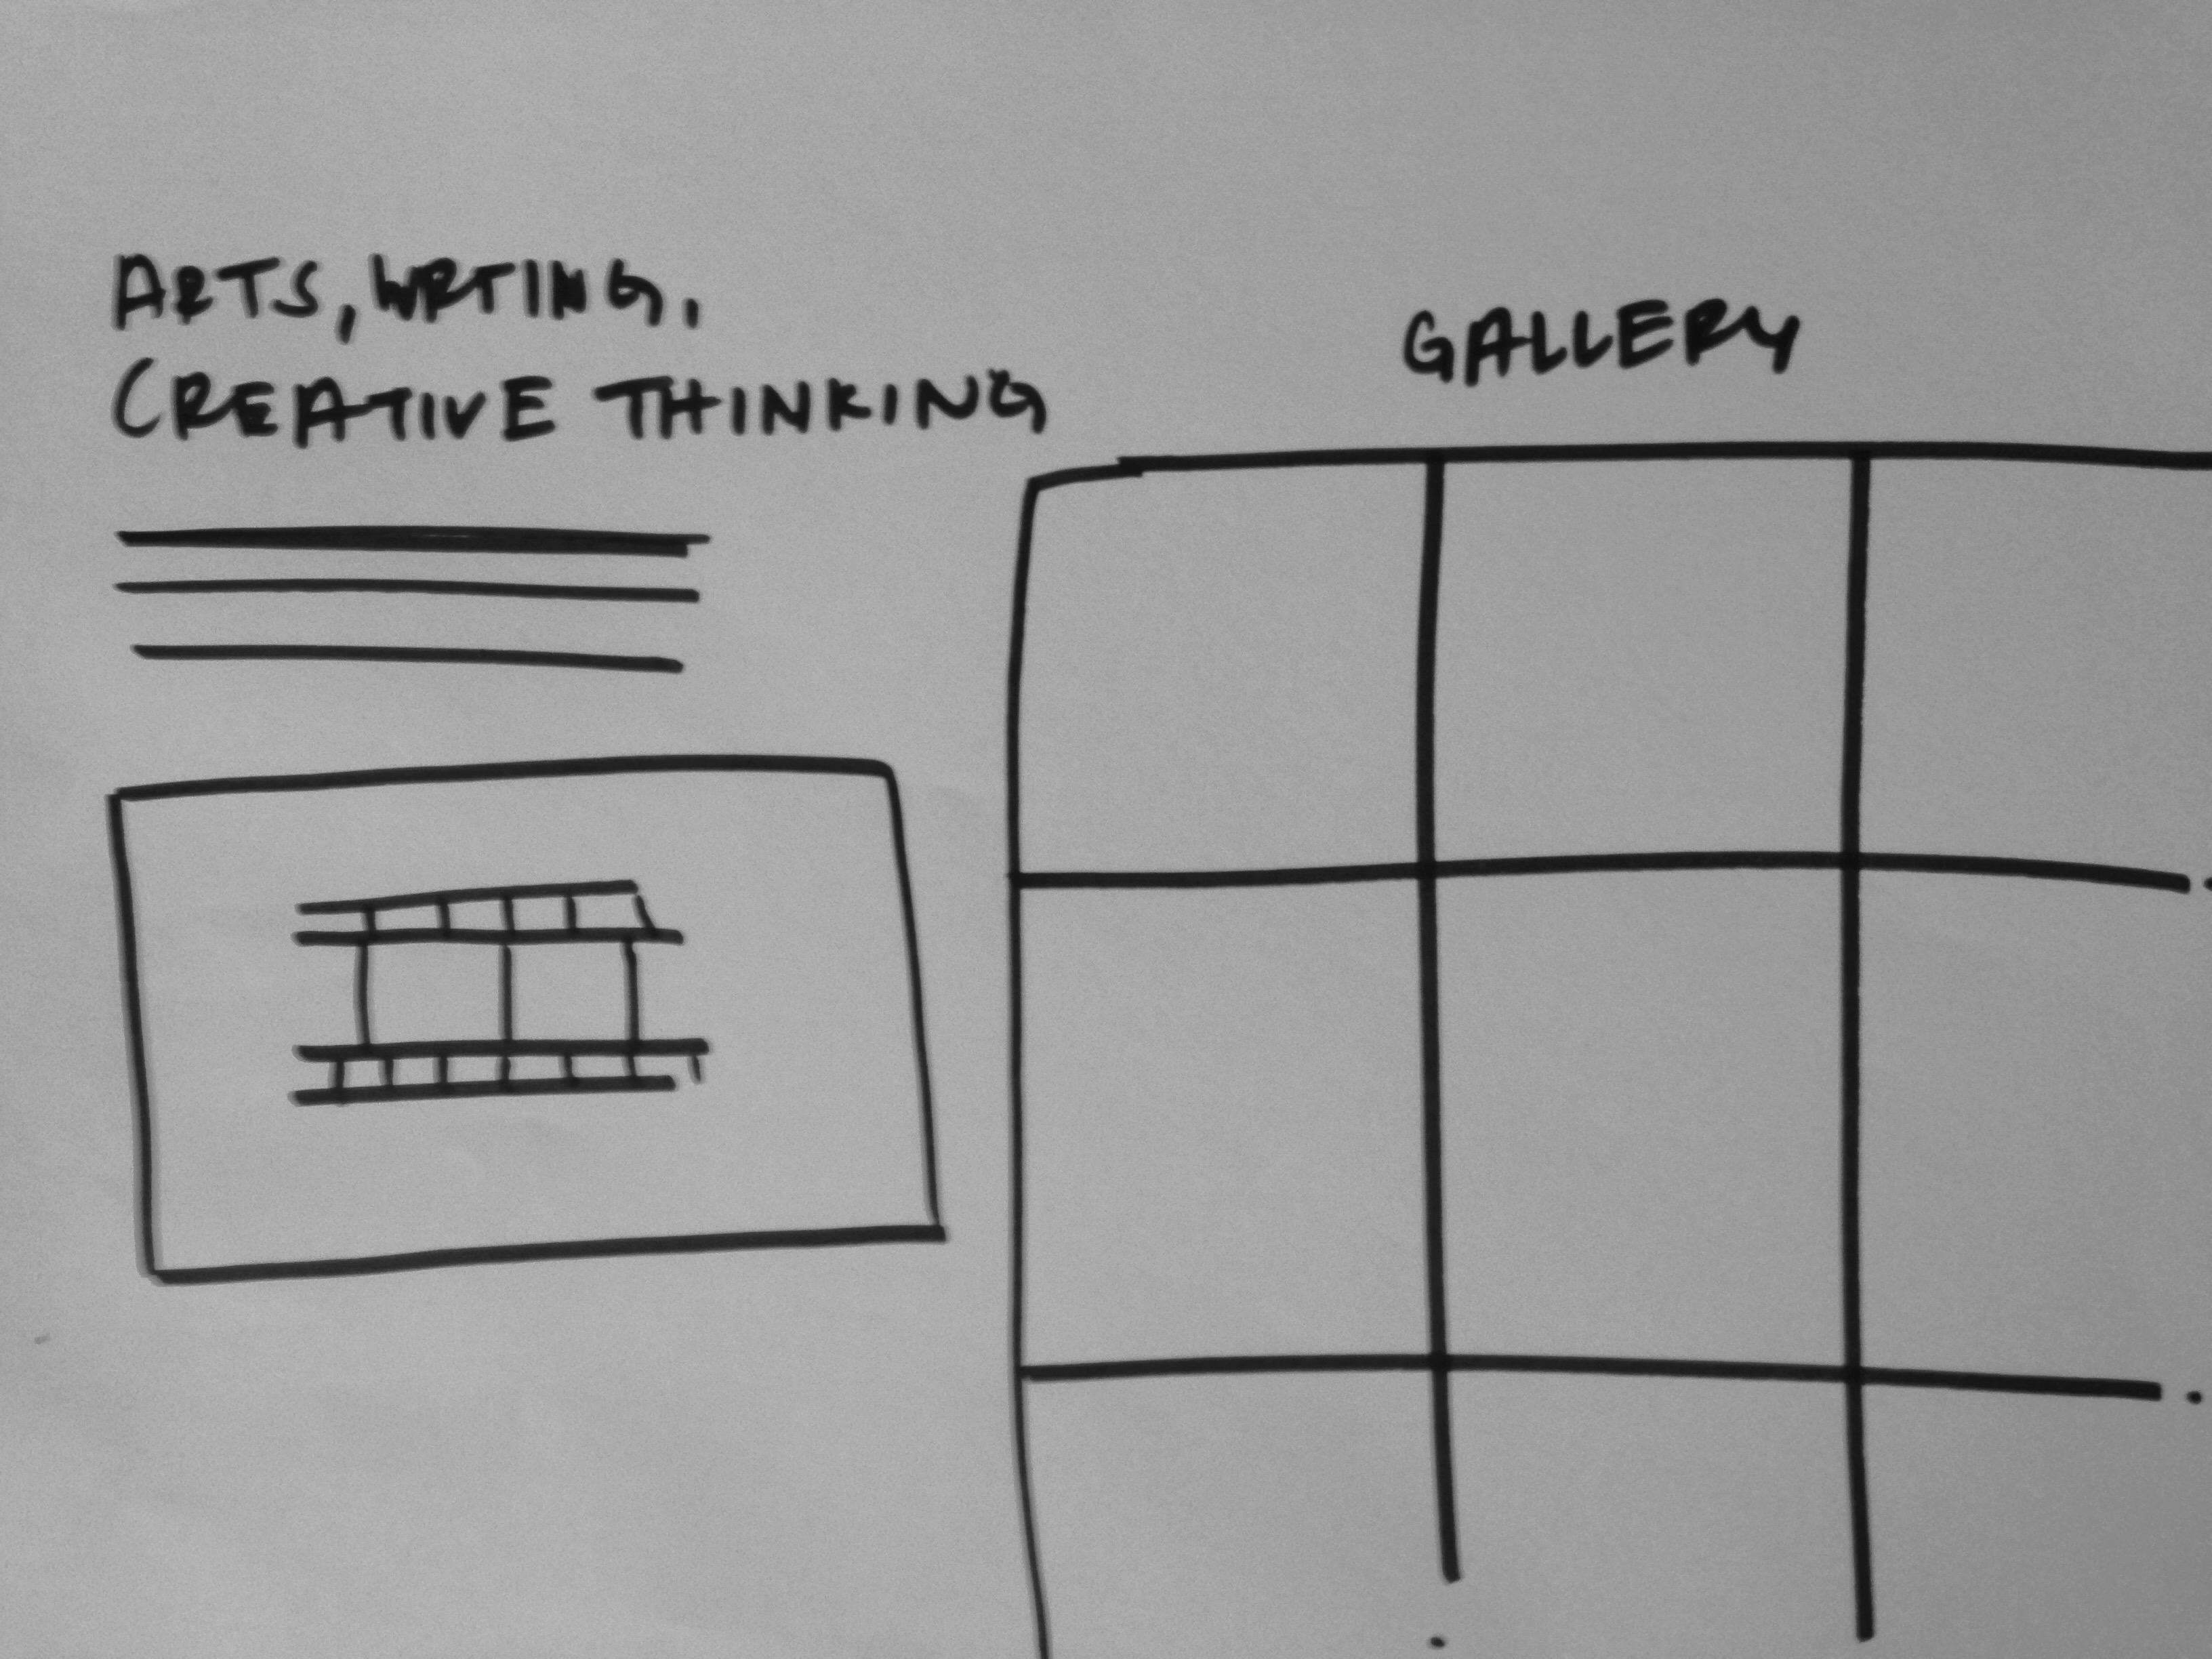 ARTS, WRTING,
CREATIVE THINKING
GALLERY